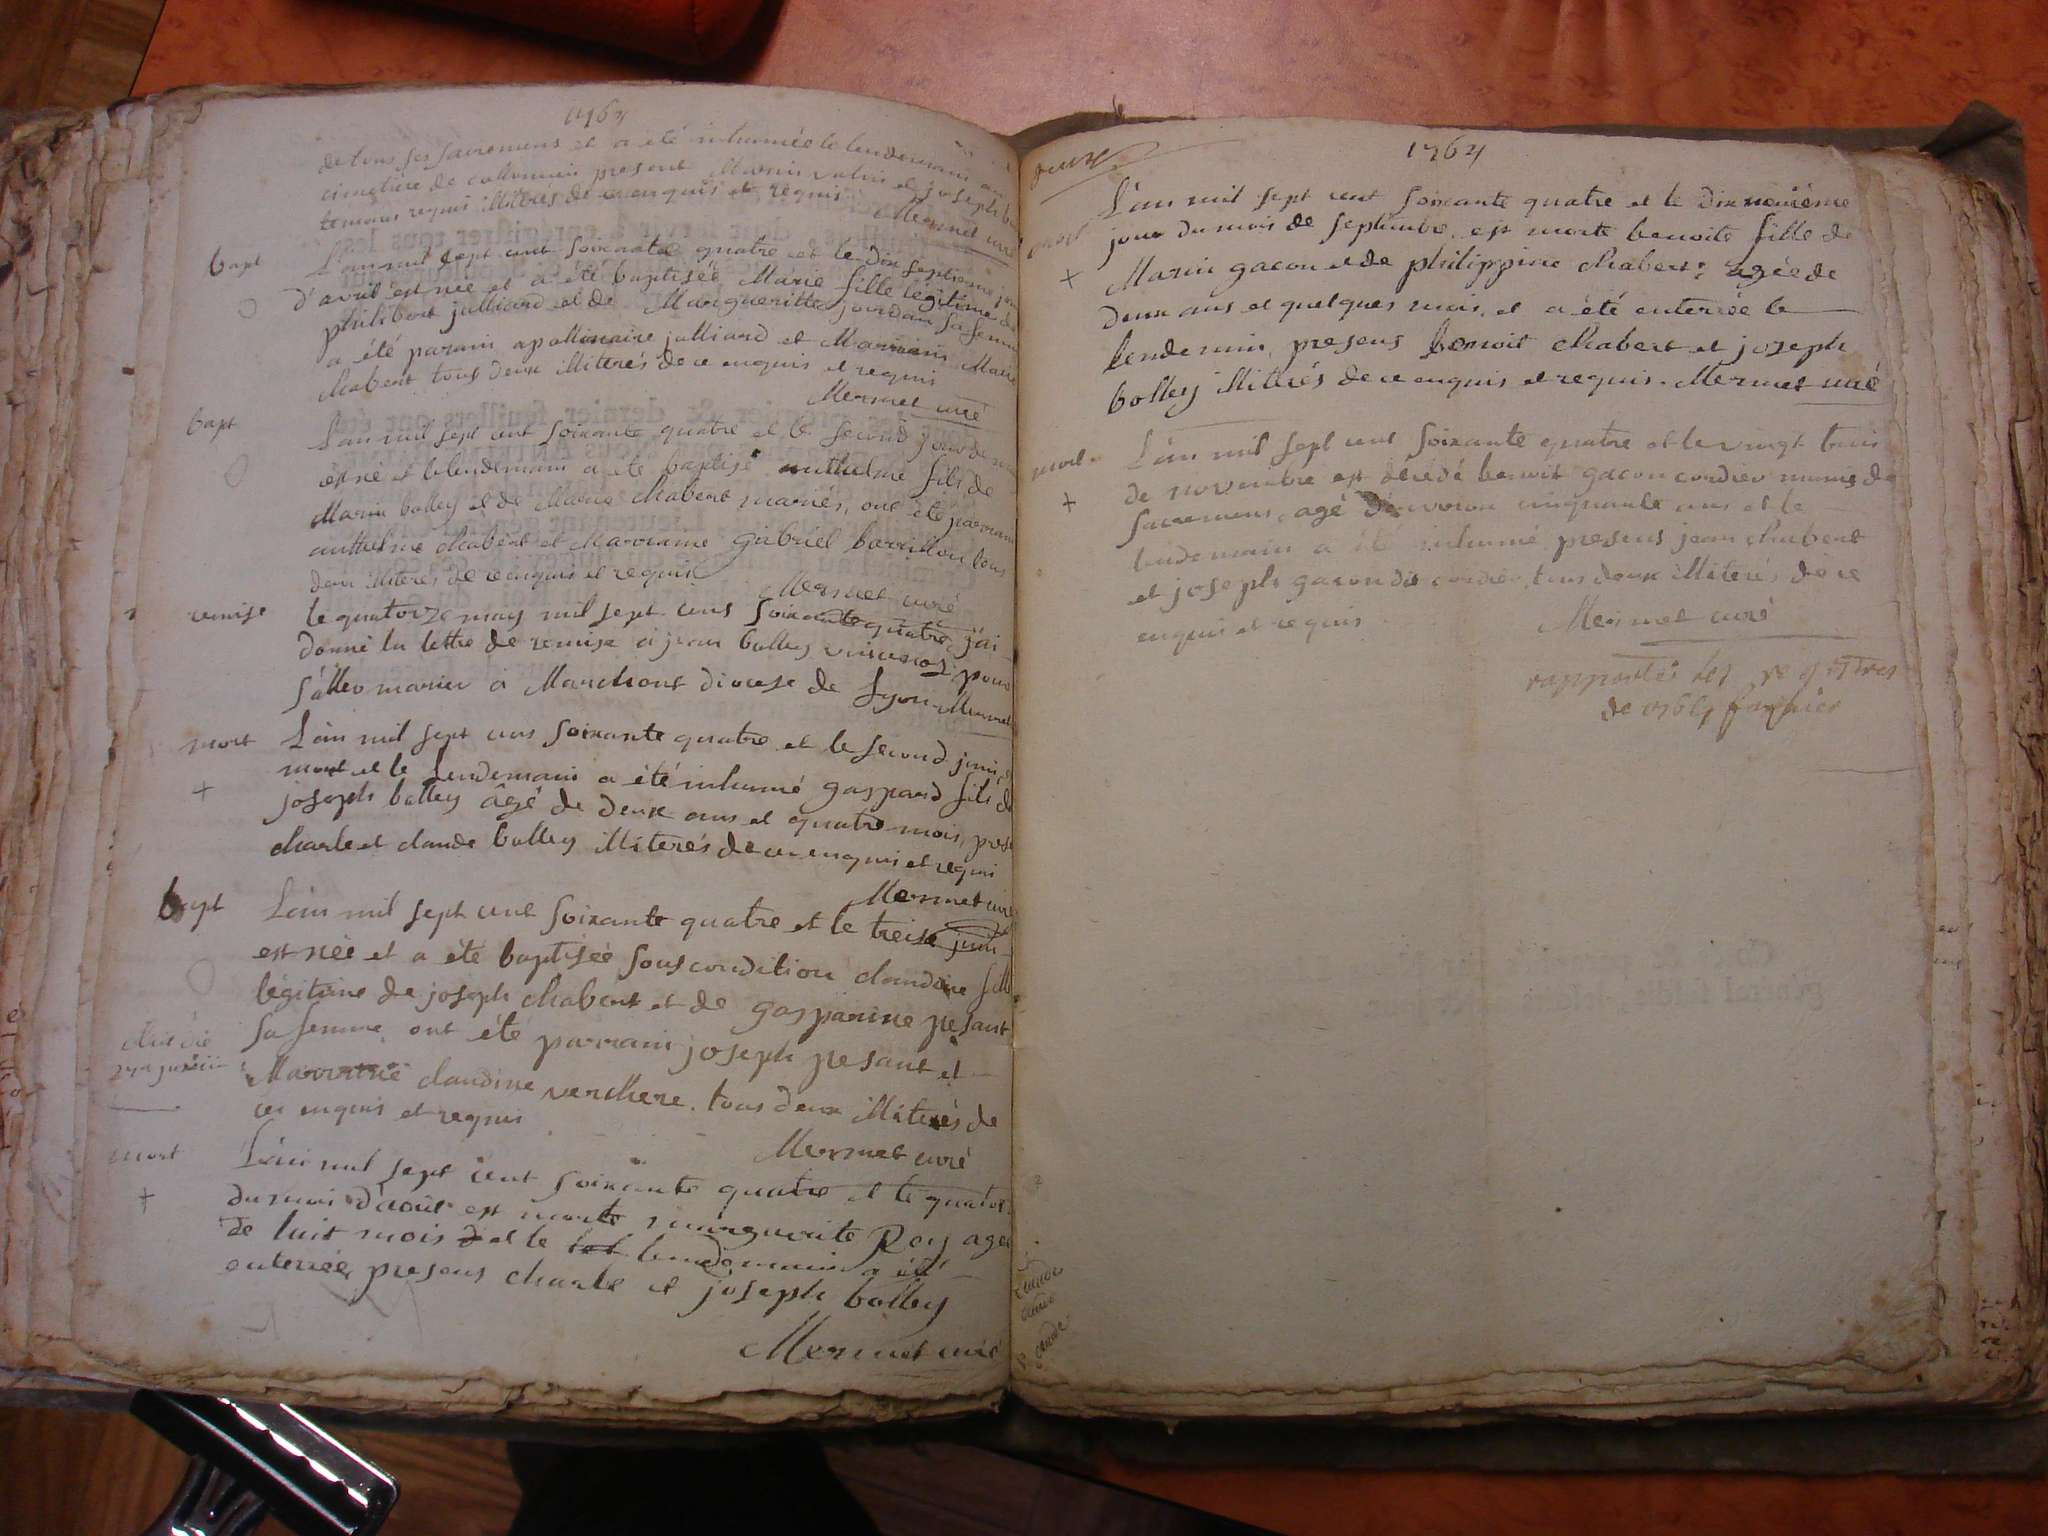 1764
de tous ses sacremens et a été inhumée le lendemain au
cimetiere de present Marin et joseph
temoins requis illiterés de ce enquis et requis
Mermet curé
bapt
L'an mil sept cent soixante quatre et le dix septieme jour
d'avril est née et a été baptisée Marie fille légitime de
philibert julliard et de Margueritte jourdan sa femme
a été parain apollinaire julliard et Maraine Marie
chabert tous deux illiterés de ce enquis et requis
Mermet curé
bapt
L'an mil sept cent soixante quatre et le second jour de
est né et le lendemain a été baptisé anthelme fils de
Marin bolley et de Marie chabert mariés, ont été parrain
anthelme chabert et Marraine gabriel tous
deux illiterés de ce enquis et requis
Mermet curé
remise
le quatorze may mil sept cens soixante quatre j'ai
donné la lettre de remise a jean bolley pour
s'aller marier a Marchont diocese de Lyon Mermet
mort
+
L'an mil sept cens soixante quatre et le second juin
mort et le lendemain a été inhumé gaspard fils de
joseph bolley âgé de deux ans et quatre mois, pres
charle et claude bolley illiterés de ce enquis et requi
Mermet curé
bapt
L'an mil sept cent soixante quatre et le treise juin
est née et a été baptisée sous condition claudine fille
légitime de joseph chabert et de gasparine pesant
sa femme, ont été parrain joseph pesant et
Marraine claudine verchere. tous deux illiterés de
ce enquis et requis
Mermet curé
mort
+
L'an mil sept cent soixante quatre et le quator
du mois d'aout est morte marguerite Rey agée
de huit mois d et le lendemain a été
enterrée, presens charle et joseph bolley
Mermet curé
1764
douze
mort
+
L'an mil sept cent soixante quatre et le dix neuiéme
jour du mois de septembre est morte benoite fille de
Marin gacon et de philippine chabert: agée de
deux ans et quelques mois, et a été enterrée le
lendemin, presens benoit chabert et joseph
bolley illiterés de ce enquis et requis. Mermet curé
mort
+
L'an mil sept cent soixante quatre et le vingt trois
de novembre est decedé benoit gacon cordier munis de
sacremens, agé d'environ cinquante ans et le
lendemain a été inhumé presens jean chabert
et joseph gacon dit cordier, tous deux illiterés de ce
enquis et requis
Mermet curé
rapportés les registres
de 1764